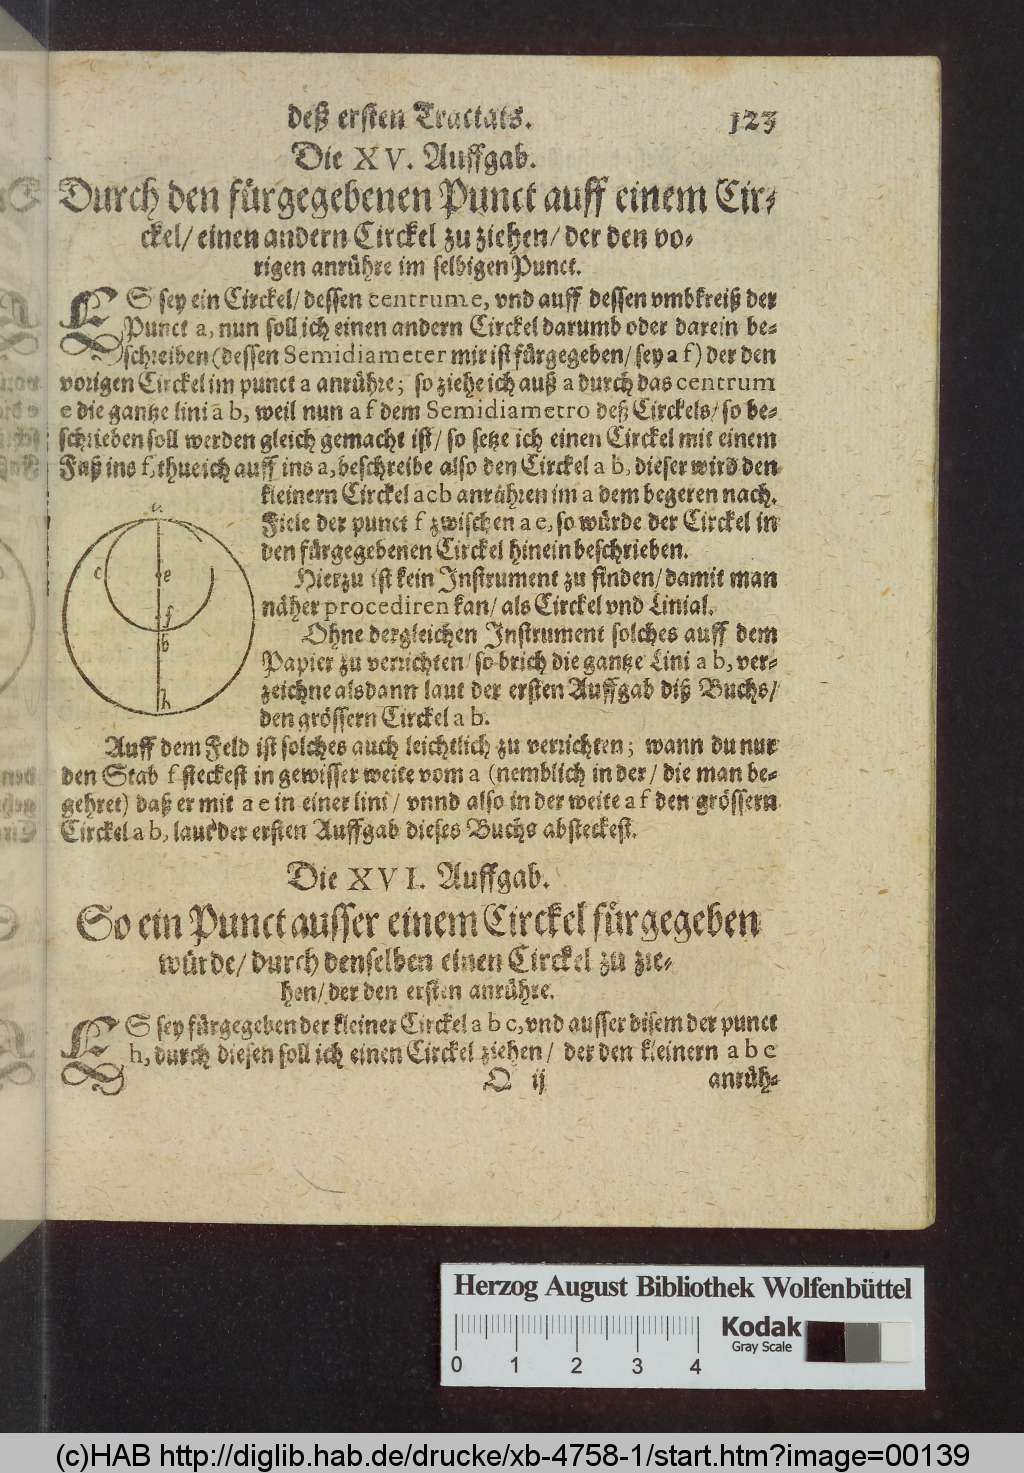 deß ersten Tractats. 123
Die XV. Auffgab.
Durch den fürgegebenen Punct auff einem Cir-
ckel/ einen andern Circkel zu ziehen/ der den vo-
rigen anrühre im selbigen Punct.
ES sey ein Circkel/ dessen centrum e, vnd auff dessen vmbkreiß der
Punct a, nun soll ich einen andern Circkel darumb oder darein be-
schreiben (dessen Semidiameter mir ist fürgegeben/ sey a f) der den
vorigen Circkel im punct a anrühre; so ziehe ich auß a durch das centrum
e die gantze lini a b, weil nun a f dem Semidiametro deß Circkels/ so be-
schrieben soll werden gleich gemacht ist/ so setze ich einen Circkel mit einem
Fuß ins f, thue ich auff ins a, beschreibe also den Circkel a b, dieser wird den
kleinern Circkel acb anrühren im a dem begeren nach.
Fiele der punct f zwischen a e, so würde der Circkel in
den fürgegebenen Circkel hinein beschrieben.
Hierzu ist kein Instrument zu finden/ damit man
näher procediren kan/ als Circkel vnd Linial.
Ohne dergleichen Instrument solches auff dem
Papier zu verrichten/ so brich die gantze Lini a b, ver-
zeichne alsdann laut der ersten Auffgab diß Buchs/
den grössern Circkel a b.
a
c
e
f
b
h
Auff dem Feld ist solches auch leichtlich zu verrichten; wann du nur
den Stab f steckest in gewisser weite vom a (nemblich in der/ die man be-
gehret) daß er mit a e in einer lini/ vnnd also in der weite a f den grössern
Circkel a b, laut der ersten Auffgab dieses Buchs absteckest.
Die XVI. Auffgab.
So ein Punct ausser einem Circkel fürgegeben
würde/ durch denselben einen Circkel zu zie-
hen/ der den ersten anrühre.
ES sey fürgegeben der kleiner Circkel a b c, vnd ausser disem der punct
h, durch diesen soll ich einen Circkel ziehen/ der den kleinern a b c
O ij anrüh-
Herzog August Bibliothek Wolfenbüttel
0 1 2 3 4
Kodak
Gray Scale
(c)HAB http://diglib.hab.de/drucke/xb-4758-1/start.htm?image=00139